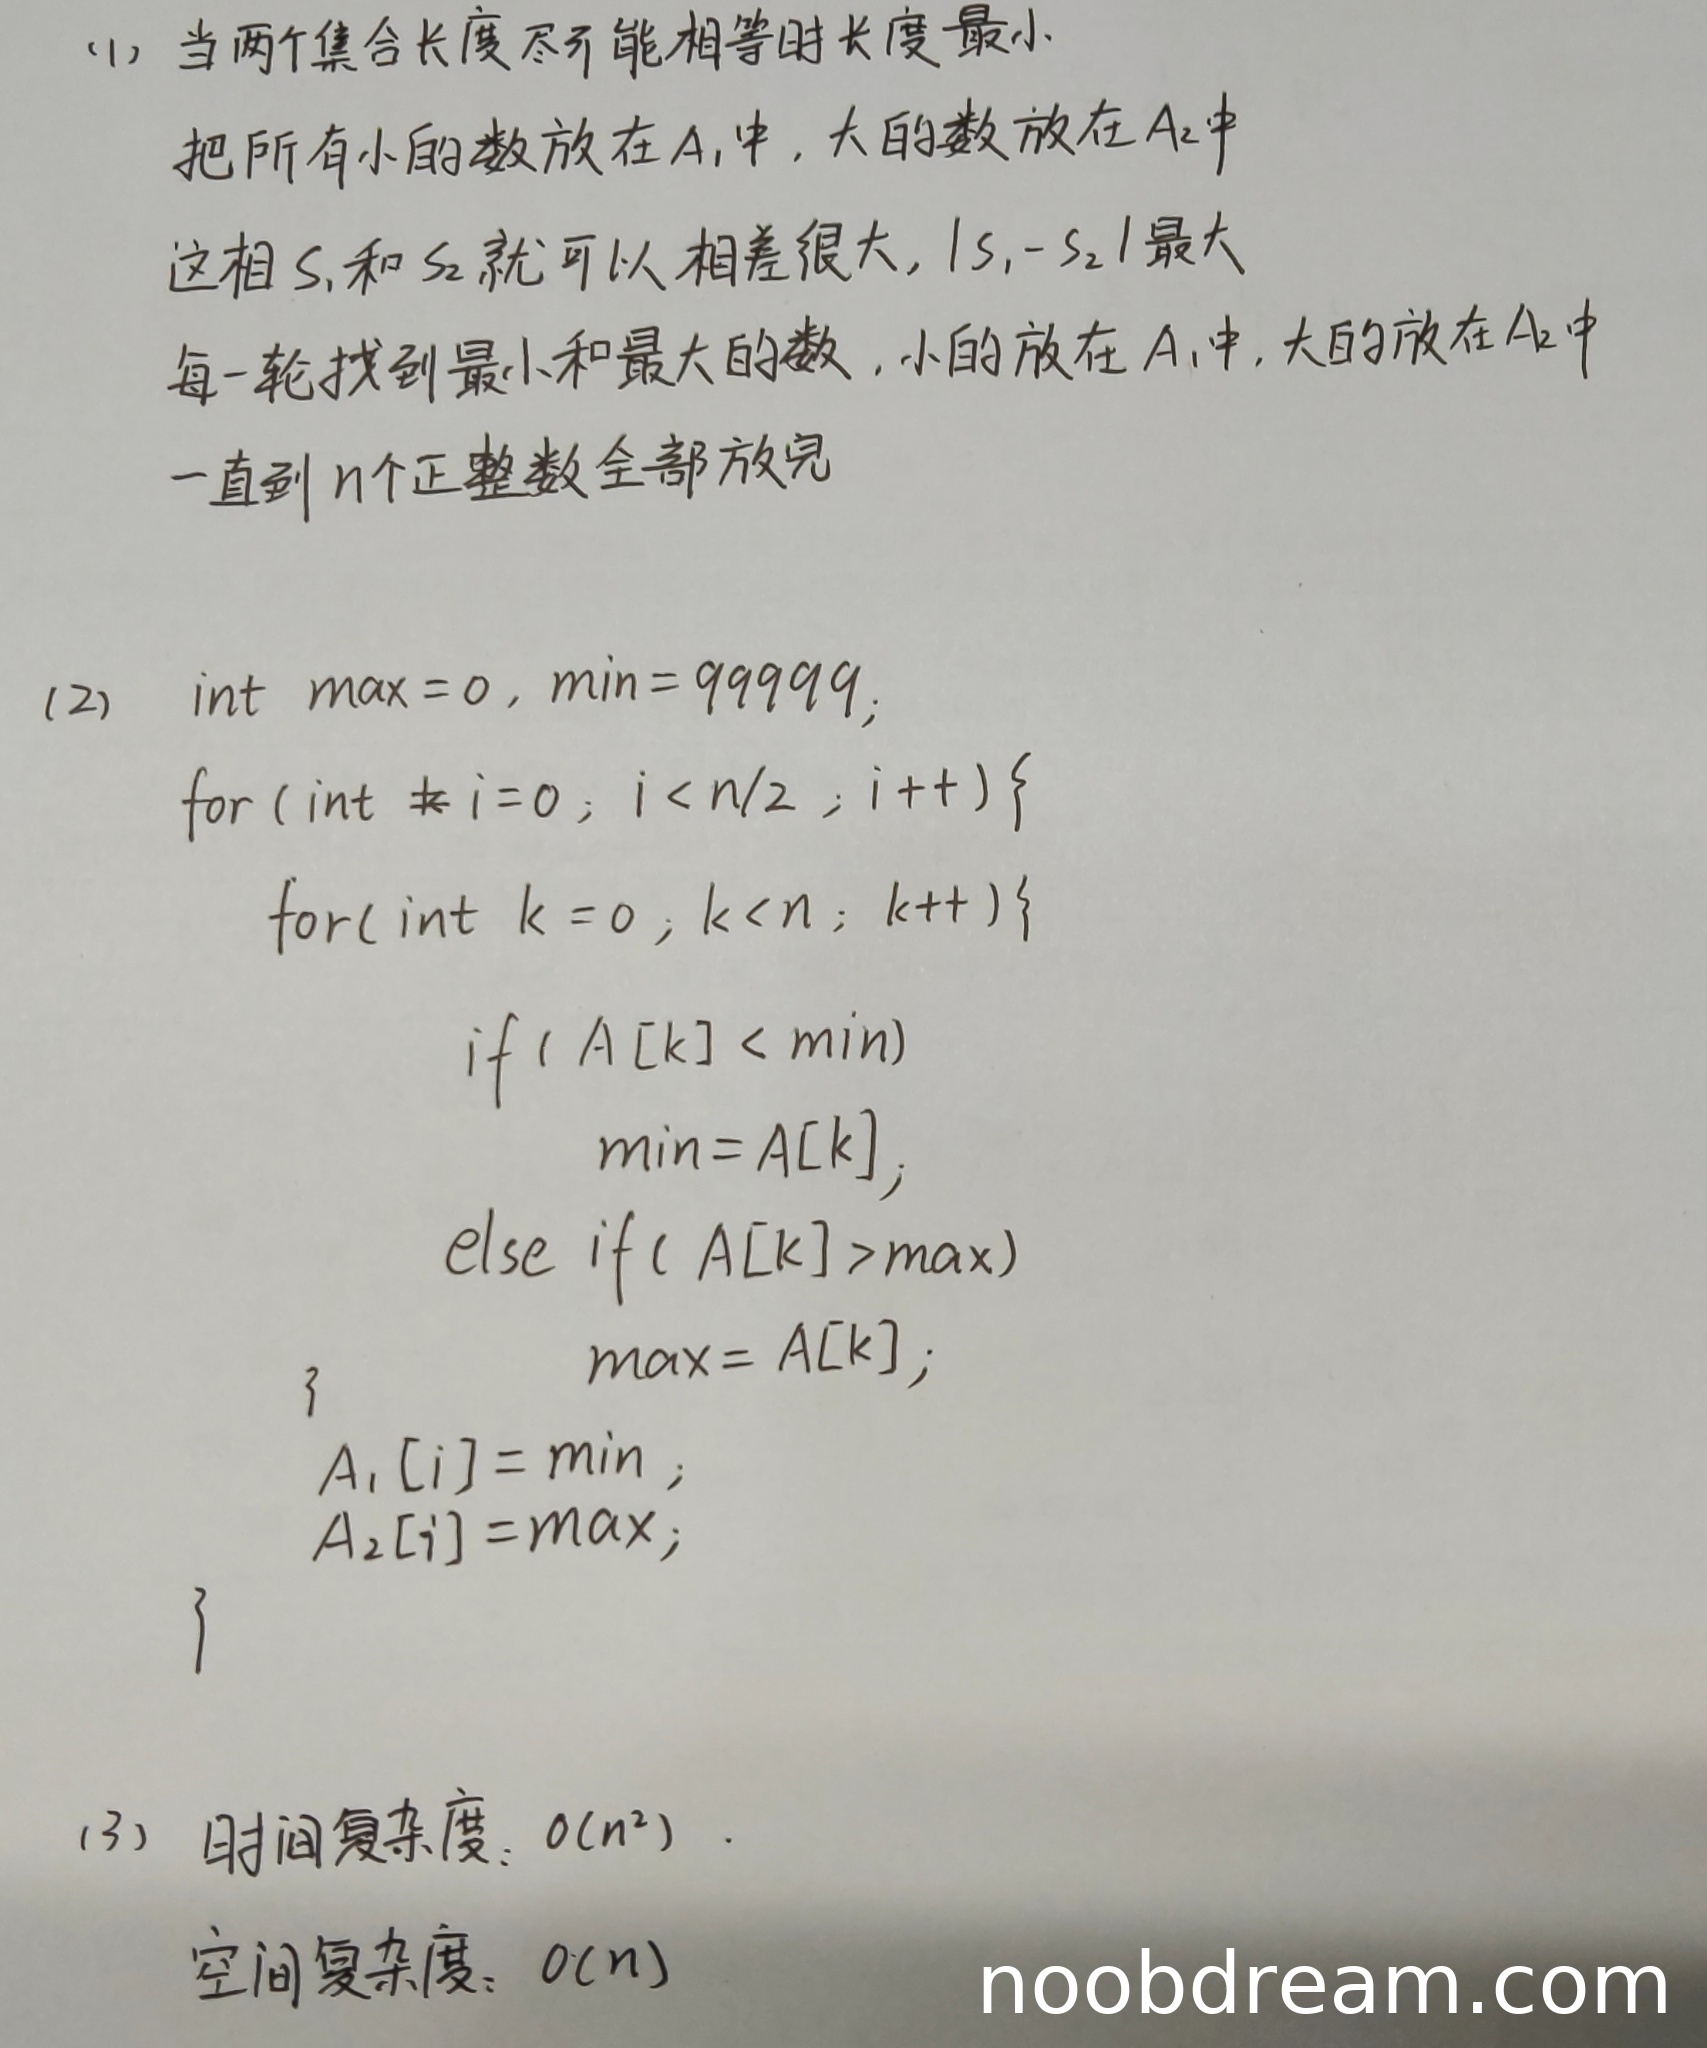 (1) 当两个集合长度尽可能相等时长度最小
把所有小的数放在A₁中，大的数放在A₂中
这相S₁和S₂就可以相差很大，|S₁-S₂|最大
每一轮找到最小和最大的数，小的放在A₁中，大的放在A₂中
一直到n个正整数全部放完
(2) int max=0, min=99999;
for(int i=0; i<n/2; i++){
for(int k=0; k<n; k++){
if(A[k]<min)
min=A[k];
else if(A[k]>max)
max=A[k];
}
A₁[i]=min;
A₂[i]=max;
}
(3) 时间复杂度：O(n²).
空间复杂度：O(n)
noobdream.com